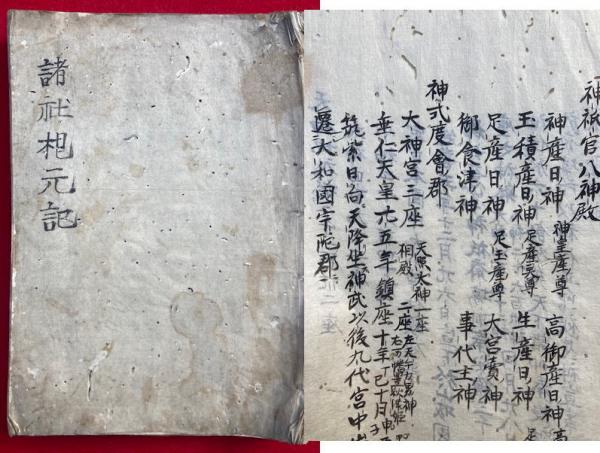 諸社根元記
神祇官八神殿
神産日神 神皇産尊 高御産日神 高
玉積産日神 足産霊尊 生産日神
足産日神 足玉産尊 大宮賣神 足
御食津神 事代主神
神弐度會郡
大神宮三座 天照太神一座
相殿 二座
垂仁天皇六五年鎮座十年丁巳十月
筑紫日向天降坐神武以後九代宮中
遷大和國宇陀郡